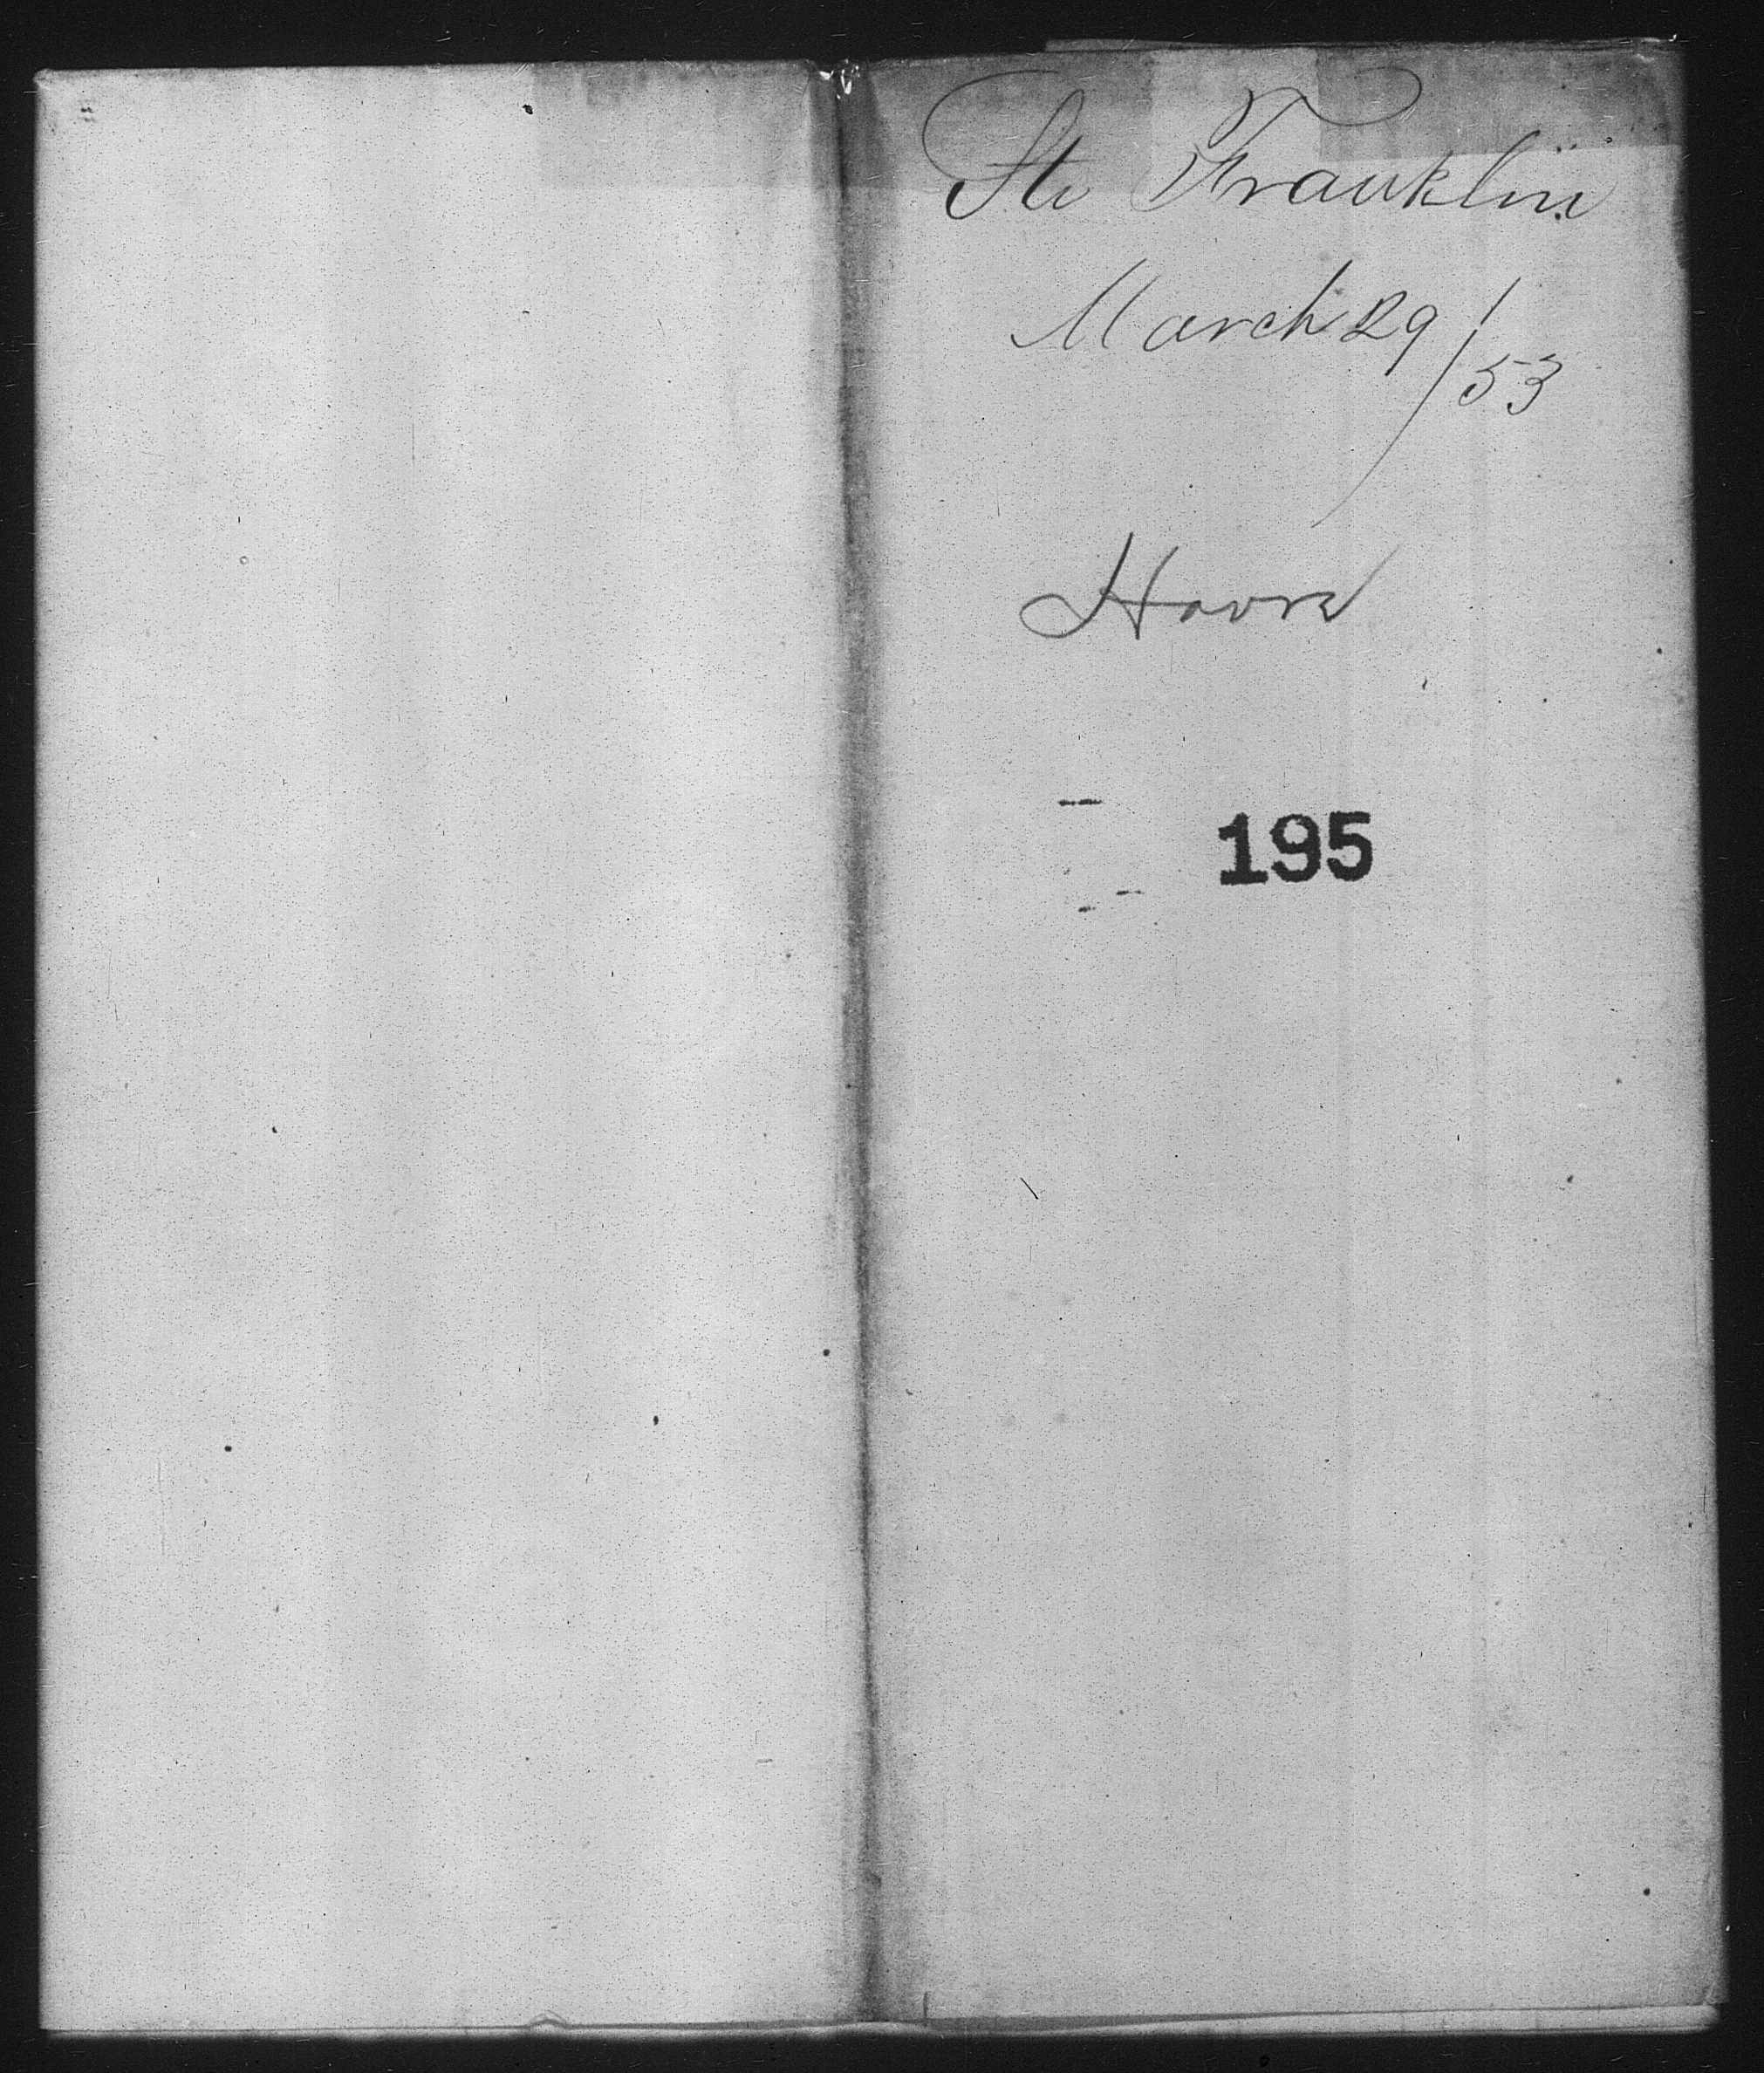 Str Franklin
March 29/53
Havre
195